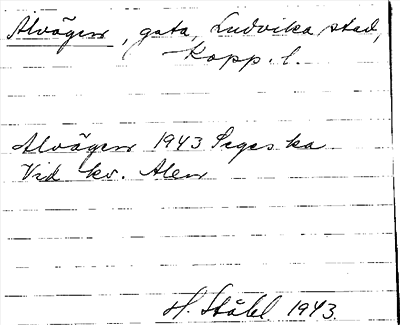 Alvägen, gata, Ludvika stad,
Kopp. l.
Alvägen 1943 Seg.ska
Vid kv. Alen
H. Ståhl 1943.